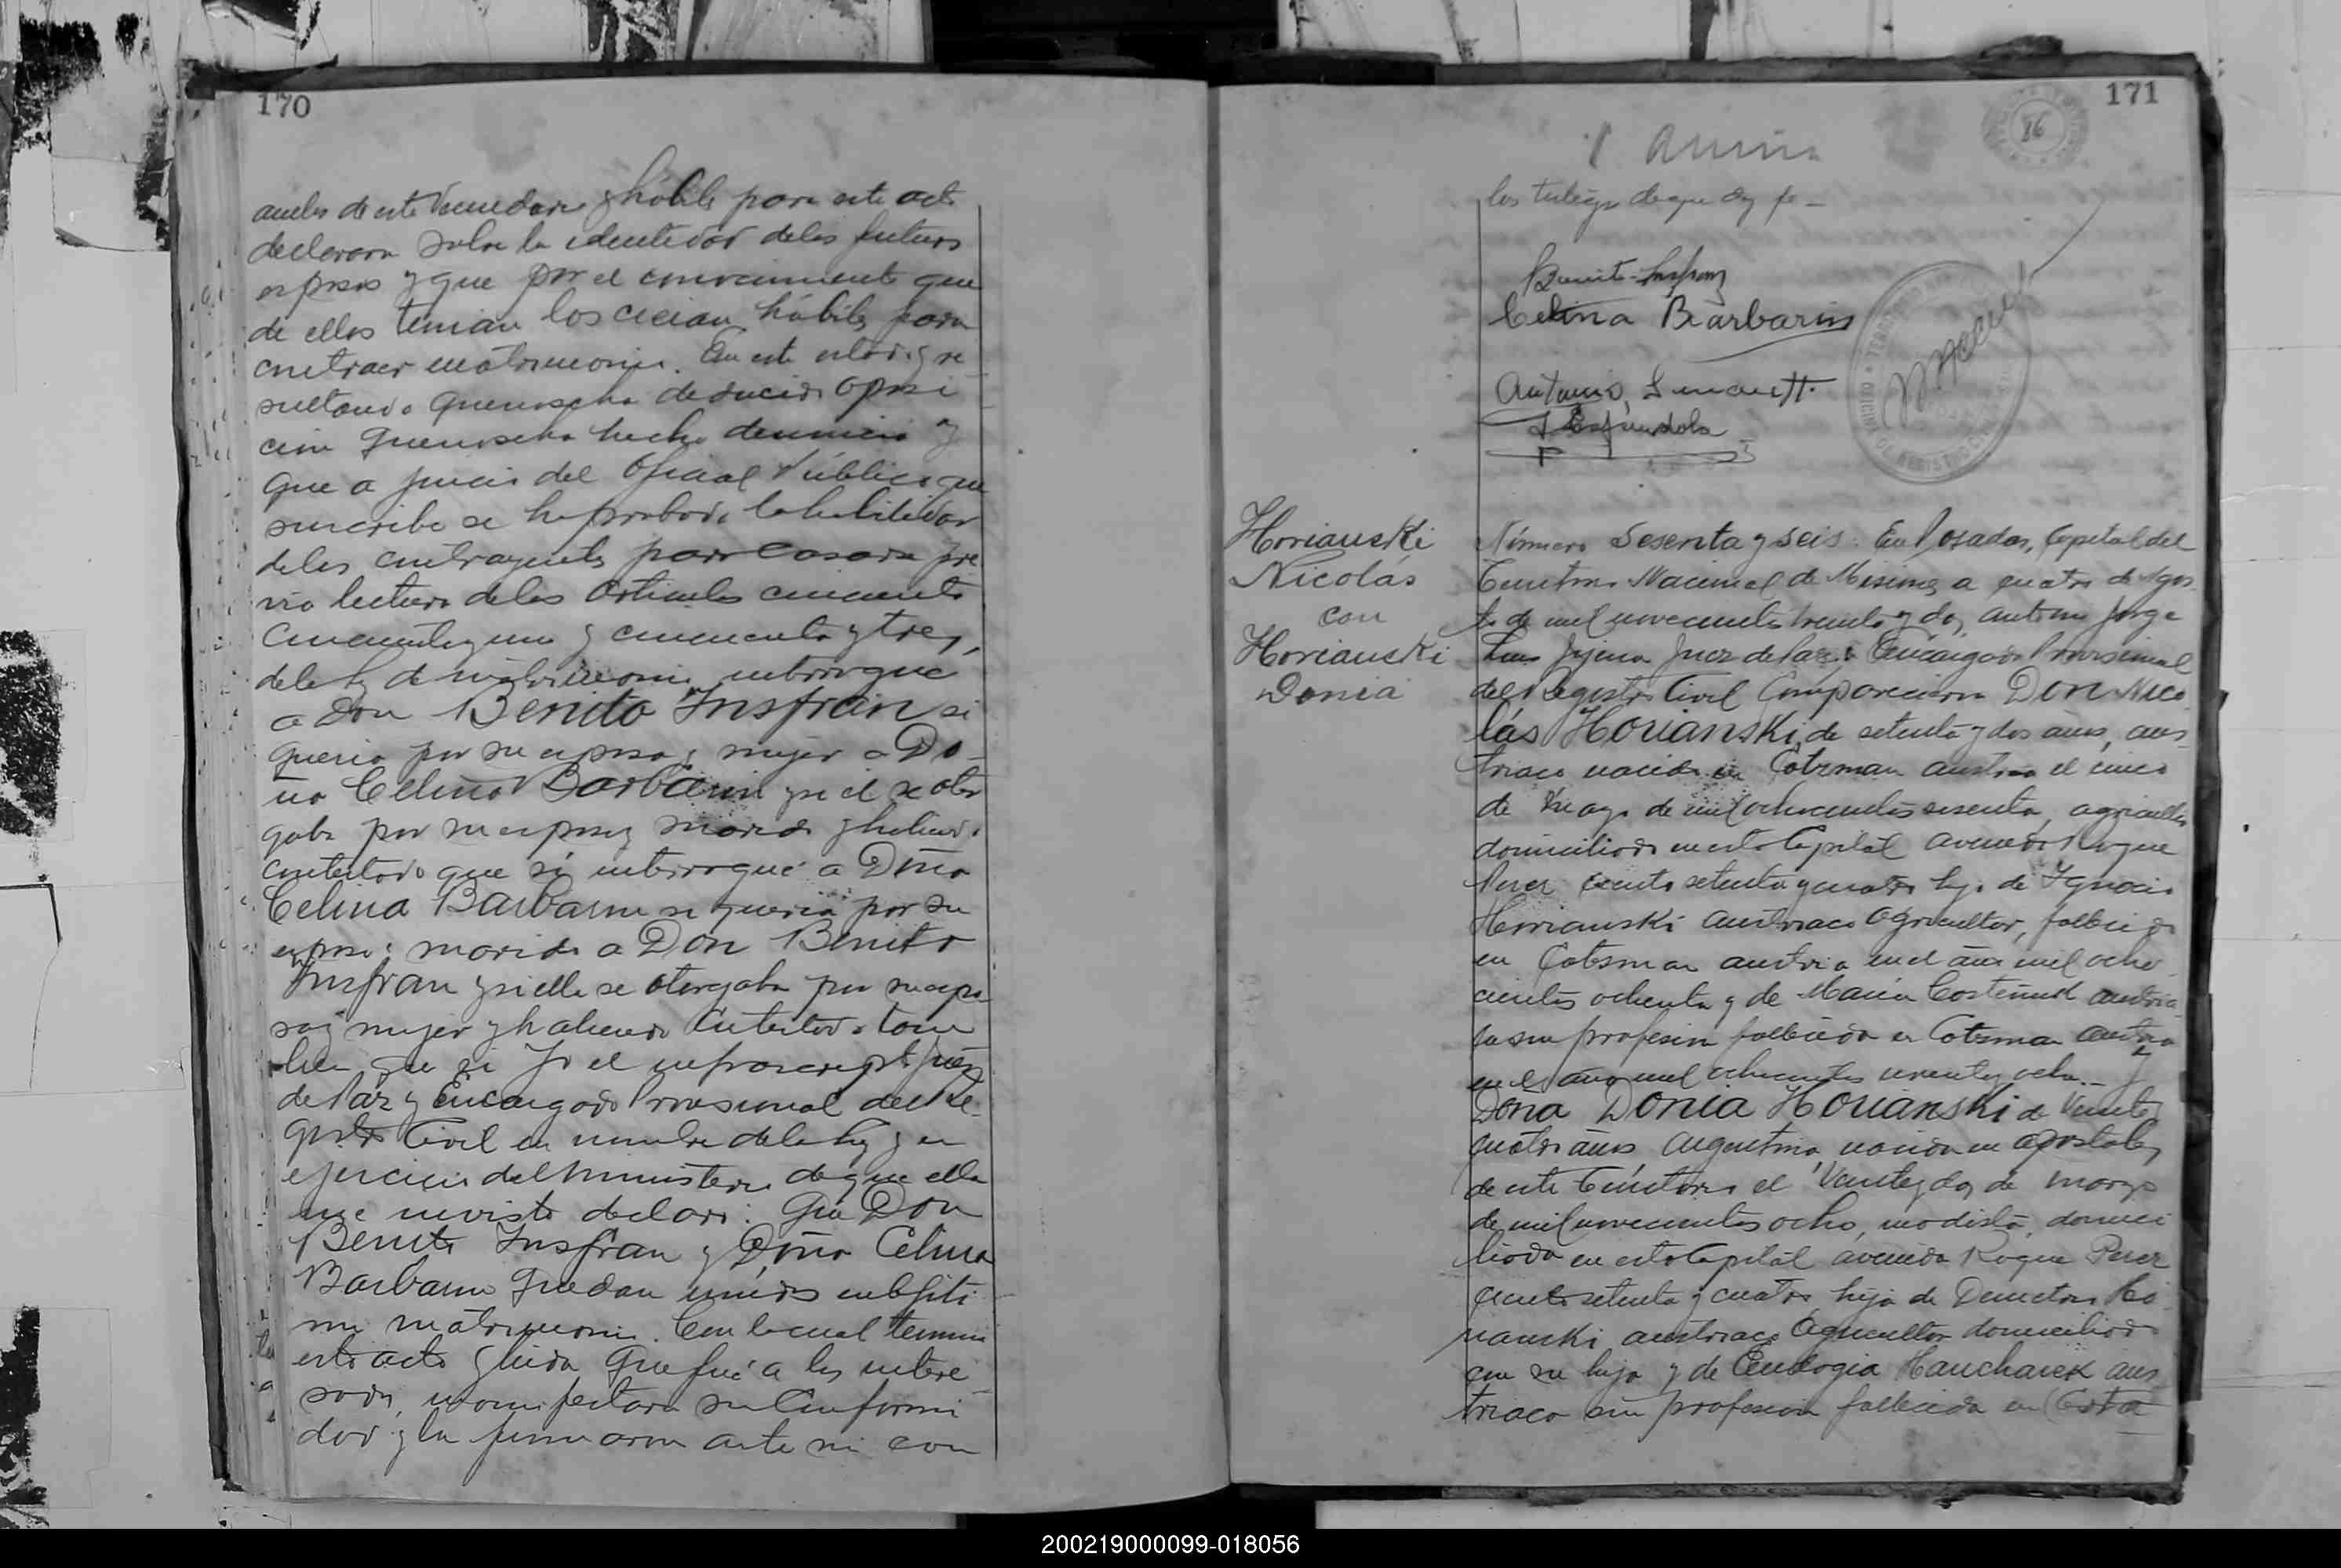 170
ambos de este Vecindario y hábiles para este acto
declararon sobre la identidad de los futuros
esposos y que por el conocimiento que
de ellos tenian los creian hábiles para
contraer matrimonio. En este estado y re
sultando que no se ha deducido oposi
cion que no se ha hecho denuncia y
que a juicio del Oficial Público que
suscribe se ha probado la habilidad
de los contrayentes para casarse pre
via lectura de los articulos cincuenta
cincuenta y uno y cincuenta y tres,
de la ley de matrimonio interrogué
a Don Benito Insfrán si
queria por su esposa y mujer a Do-
ña Celina Barbarin y si él se otor
gaba por su esposo y marido y habiendo
contestado que si interrogué a Doña
Celina Barbarin si queria por su
esposo y marido a Don Benito
Insfran y si ella se otorgaba por su espo-
sa y mujer y habiendo contestado tam
bien que si Yo el infrascripto Juez
de Paz y Encargado Provisional del Re-
gistro Civil en nombre de la ley y en
ejercicio del Ministerio de que ella
me reviste declaro: Que Don
Benito Insfran y Doña Celina
Barbarin quedan unidos en legiti
mo matrimonio. Con lo cual terminó
este acto y leida que fué a los intere-
sados, manifestaron su conformi
dad y la firmaron ante mi con
171
86
los testigos de que doy fe-
Benito Insfran
Celina Barbarin
Antonio
Espindola
Horianski
Nicolás
con
Horianski
Donia
Número Sesenta y seis. En Posadas, Capital del
Territorio Nacional de Misiones a cuatro de Agos
to de mil novecientos treinta y dos, ante mi Jorge
Luis Juez de Paz y Encargado Provisional
del Registro Civil Comparecieron Don Nico
lás Horianski, de setenta y dos años, aus-
triaco nacido en Cotzman Austria el cinco
de Mayo de mil ochocientos sesenta, agricultor
domiciliado en esta Capital avenida Roque
Perez ciento setenta y cuatro hijo de Ignacio
Horianski austriaco agricultor, fallecido
en Cotzman austria en el año mil ocho
cientos ochenta y de Maria austria-
ca sin profesion fallecida en Cotzman Austria
en el año mil ochocientos noventa y ocho.- y
Doña Donia Horianski de Veinte y
cuatro años argentina, nacida en Apostoles
de este Territorio el Veinte y dos de marzo
de mil novecientos ocho, modista, domici
liada en esta Capital avenida Roque Perez
ciento setenta y cuatro hija de Demetrio Ho
rianski austriaco agricultor domiciliado
con su hija y de Eudogia Hancharek aus
triaca sin profesion fallecida en Esta
200219000099-018056